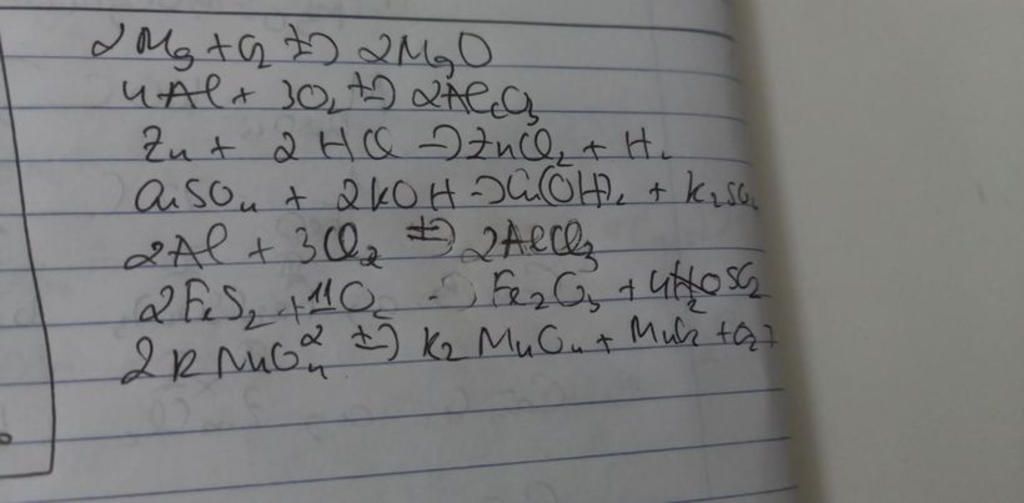 2Mg + O2 t°→ 2MgO
4Al + 3O2 t°→ 2Al2O3
Zn + 2HCl → ZnCl2 + H2
CuSO4 + 2KOH → Cu(OH)2 + K2SO4
2Al + 3Cl2 t°→ 2AlCl3
2FeS2 + 11O2 → Fe2O3 + 4SO2
2KMnO4 t°→ K2MnO4 + MnO2 + O2↑